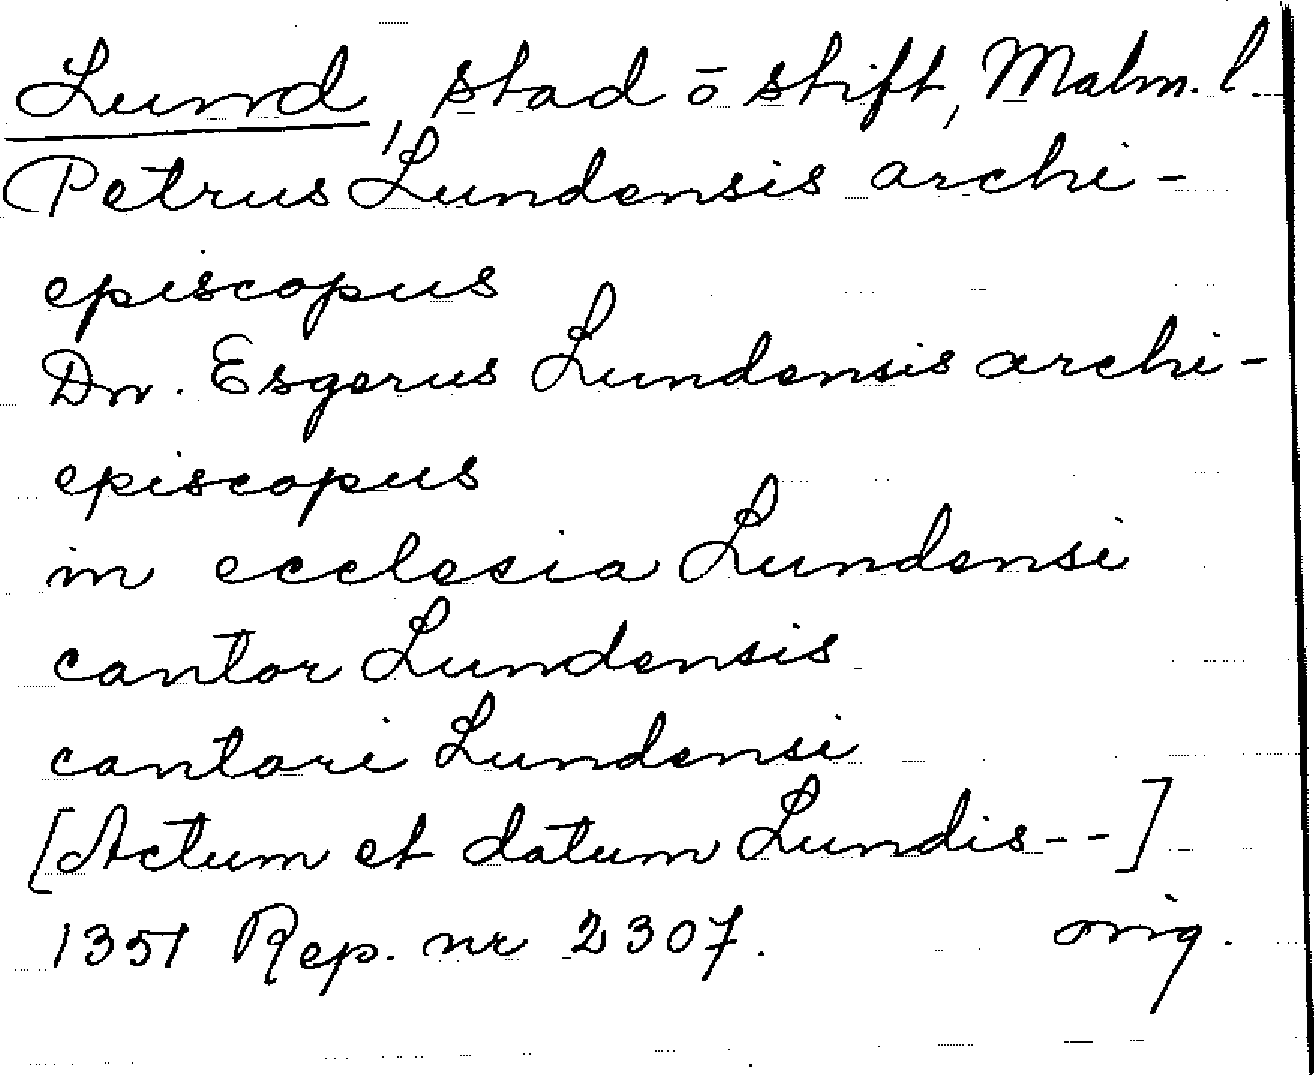 Lund, stad ō stift, Malm. l.
Petrus Lundensis archi-
episcopus
Dn. Esgerus Lundensis archi-
episcopus
in ecclesia Lundensi
cantor Lundensis
cantori Lundensi
[Actum et datum Lundis--]
1351 Rep. nr 2307. orig.